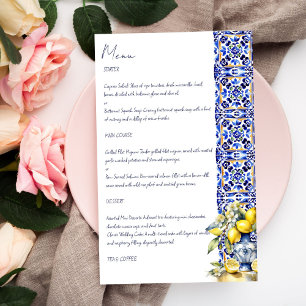 Menu
STARTER
Caprese Salad: Slices of ripe tomatoes, fresh mozzarella, basil
leaves, drizzled with balsamic glaze and olive oil.
or
Butternut Squash Soup: Creamy butternut squash soup with a hint
of nutmeg and a dollop of sour
MAIN COURSE
Grilled Filet Mignon: Tender grilled filet mignon, served with roasted
garlic mashed potatoes and steamed asparagus.
or
Pan-Seared Salmon: Norwegian salmon fillet, with lemon
served with wild rice pilaf and sautéed green beans.
DESSERT
Assorted Mini Desserts: A decadent trio featuring mini cheesecakes,
chocolate mousse cups, and fruit tarts.
Classic Wedding Cake: A multi-tiered cake with layers of vanilla
and raspberry filling, elegantly decorated.
TEA & COFFEE